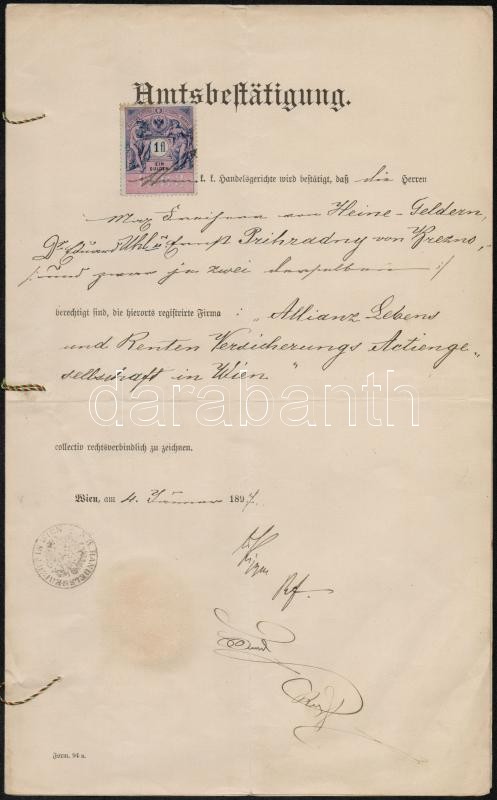 Amtsbestätigung.
1 fl
EIN
GULDEN
Vom k. k. Handelsgerichte wird bestätigt, daß die Herren
Max Freiherr von Heine-Geldern,
Dr Eduard Uhl u Ernst Prihradny von Brezno,
/: und zwar je zwei derselben :/
berechtigt sind, die hierorts registrirte Firma: "Allianz Lebens
und Renten Versicherungs Actienge-
sellschaft in Wien"
darabanth
collectiv rechtsverbindlich zu zeichnen.
Wien, am 4. Jänner 1897.
K. K. HANDELSGERICHT WIEN
Form. 94 a.